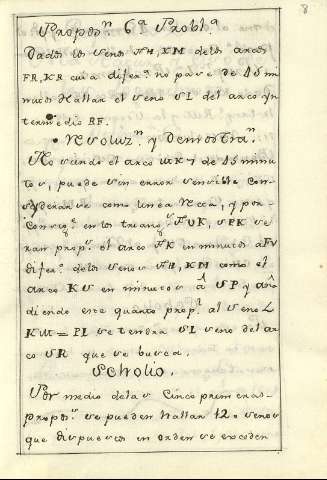 8
Propos.ⁿ 6.ª Probl.ª
Dados los Senos FH, KM delos arcos
FR, KR cuia difer.ª no pase de 45 mi
nutos Hallar el seno SL del arco yn
termedio RF.
Resoluz.ⁿ y Demostra.ⁿ
No siendo el arco mas de 45 minu
tos, puede sin error sensible con
syderarse como linea Recta, y por
en los triang.ˢ FVK, SPK se
ran prop.ˢ el arco FK en minutos a FV
difer.ª delos senos FH, KM como el
arco KS en minutos a SP y aña
diendo este quarto prop.ˡ al seno
KM = PL se tendra SL seno del ar
co SR que se busca.
Scholio.
Por medio delas Cinco primeras
propos.ˢ se pueden Hallar 120 senos
que dispuestos en orden se exceden